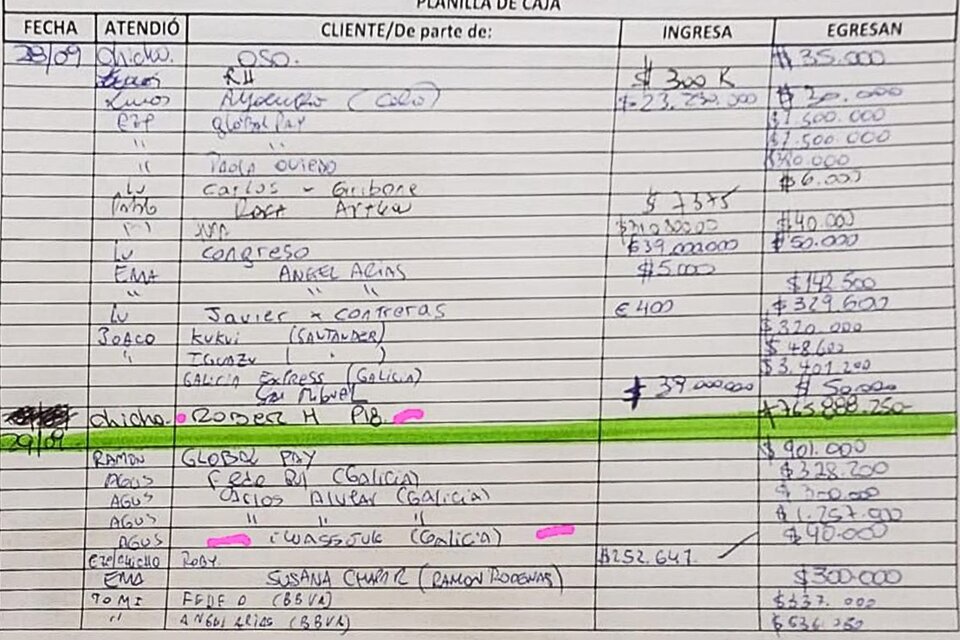 PLANILLA DE CAJA
FECHA ATENDIÓ CLIENTE/De parte de: INGRESA EGRESAN
28/09 chicho. OSO. $ 35.000
RH $ 300 K
(Colo) $ 23.230.000 $ 20.000
eze global PAY $7.500.000
" " $7.500.000
" Paola OVIEDO
Lu Carlos - Giribone $ 6.000
Pablo $ 7375
$40.000
Lu congreso $39.000.000 $50.000
EMA ANGEL ARIAS $5.000
" " " $142.500
Lu Javier x contreras € 400 $329.600
JOACO KUKUI (SANTANDER) $320.000
" IGUAZU ( " ) $ 48.600
GALICIA EXPRESS (GALICIA) $3.401.200
San Miguel $ 39.000.000 $ 50.000
chicho. ROBER H P/B. $765.888.250-
29/09
RAMON GLOBAL PAY $ 901.000
AGUS (Galicia) $328.200
AGUS Carlos Alvear (Galicia) $ 300.000
AGUS " " " $1.257.900
AGUS iwassjuk (Galicia) $ 90.000
eze/chicho ROBY. $252.647.
EMA SUSANA CHAPAR (RAMON RODENAS) $300.000
TOMI FEDE O (BBVA) $337.000
" ANGEL ARIAS (BBVA) $536.250